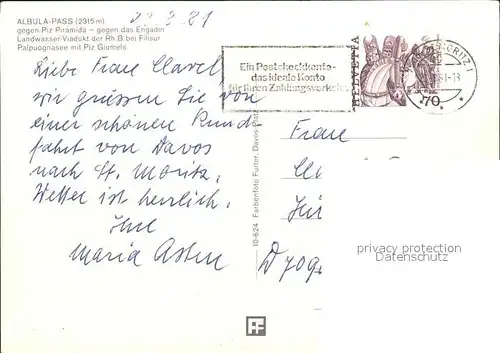 ALBULA-PASS (2315 m)
gegen Piz Piramida – gegen das Engadin
Landwasser-Viadukt der Rh.B. bei Filisur
Palpuognasee mit Piz Giumels
22.8.81
Liebe Frau Clavel
wir grüssen Sie von
einer schönen Rund
fahrt von Davos
nach St. Moritz.
Wetter ist herrlich.
Ihre
Maria
10-624 Farbenfoto Furter, Davos-Platz
Ein Postcheckkonto-
das ideale Konto
für Ihren Zahlungsverkehr
HELVETIA
70
MORITZ 1
-13
Frau
privacy protection
Datenschutz
FF